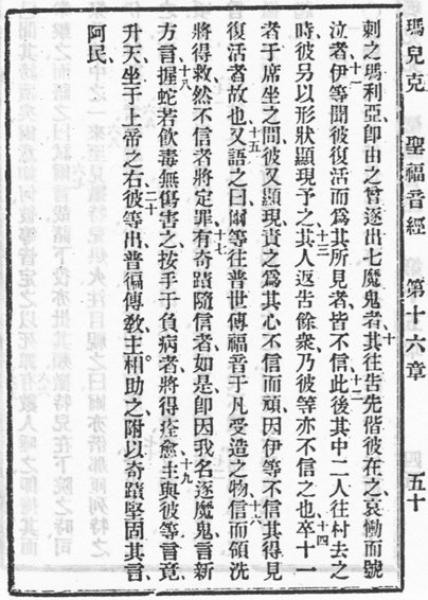 瑪兒克 聖福音經 第十六章 五十
刺之瑪利亞、卽由之曾逐出七魔鬼者、十其往告先偕彼在之哀慟而號
泣者、十一伊等聞彼復活而爲其所見者、皆不信、十二此後其中二人往村去之
時彼另以形狀顯現予之、十三其人返告餘衆乃彼等亦不信之也、十四卒十一
者于席坐之間彼又顯現、責之爲其心不信而頑因伊等不信其得見
復活者故也、十五又語之曰爾等往普世傳福音于凡受造之物、十六信而領洗
將得救然不信者將定罪、十七有奇蹟隨信者如是卽因我名逐魔鬼言新
方言、十八握蛇若飲毒無傷害之按手于負病者將得痊愈、十九主與彼等言竟、
升天坐于上帝之右、二十彼等出普徧傳敎、主相助之附以奇蹟堅固其言、
阿民、